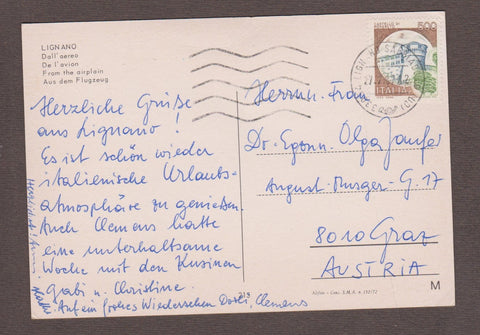 LIGNANO
Dall'aereo
De l'avion
From the airplain
Aus dem Flugzeug
500
ITALIA
Herzliche Grüße
aus Lignano!
Es ist schön wieder
italienische Urlaubs-
atmosphäre zu genießen.
Auch Clemens hatte
eine unterhaltsame
Woche mit den Kusinen
Gabi und Christine.
Auf ein frohes Wiedersehen Clemens
Herrn u. Frau
Dr. Egon u. Olga
August-Musger-G. 17
8010 Graz
AUSTRIA
215
M